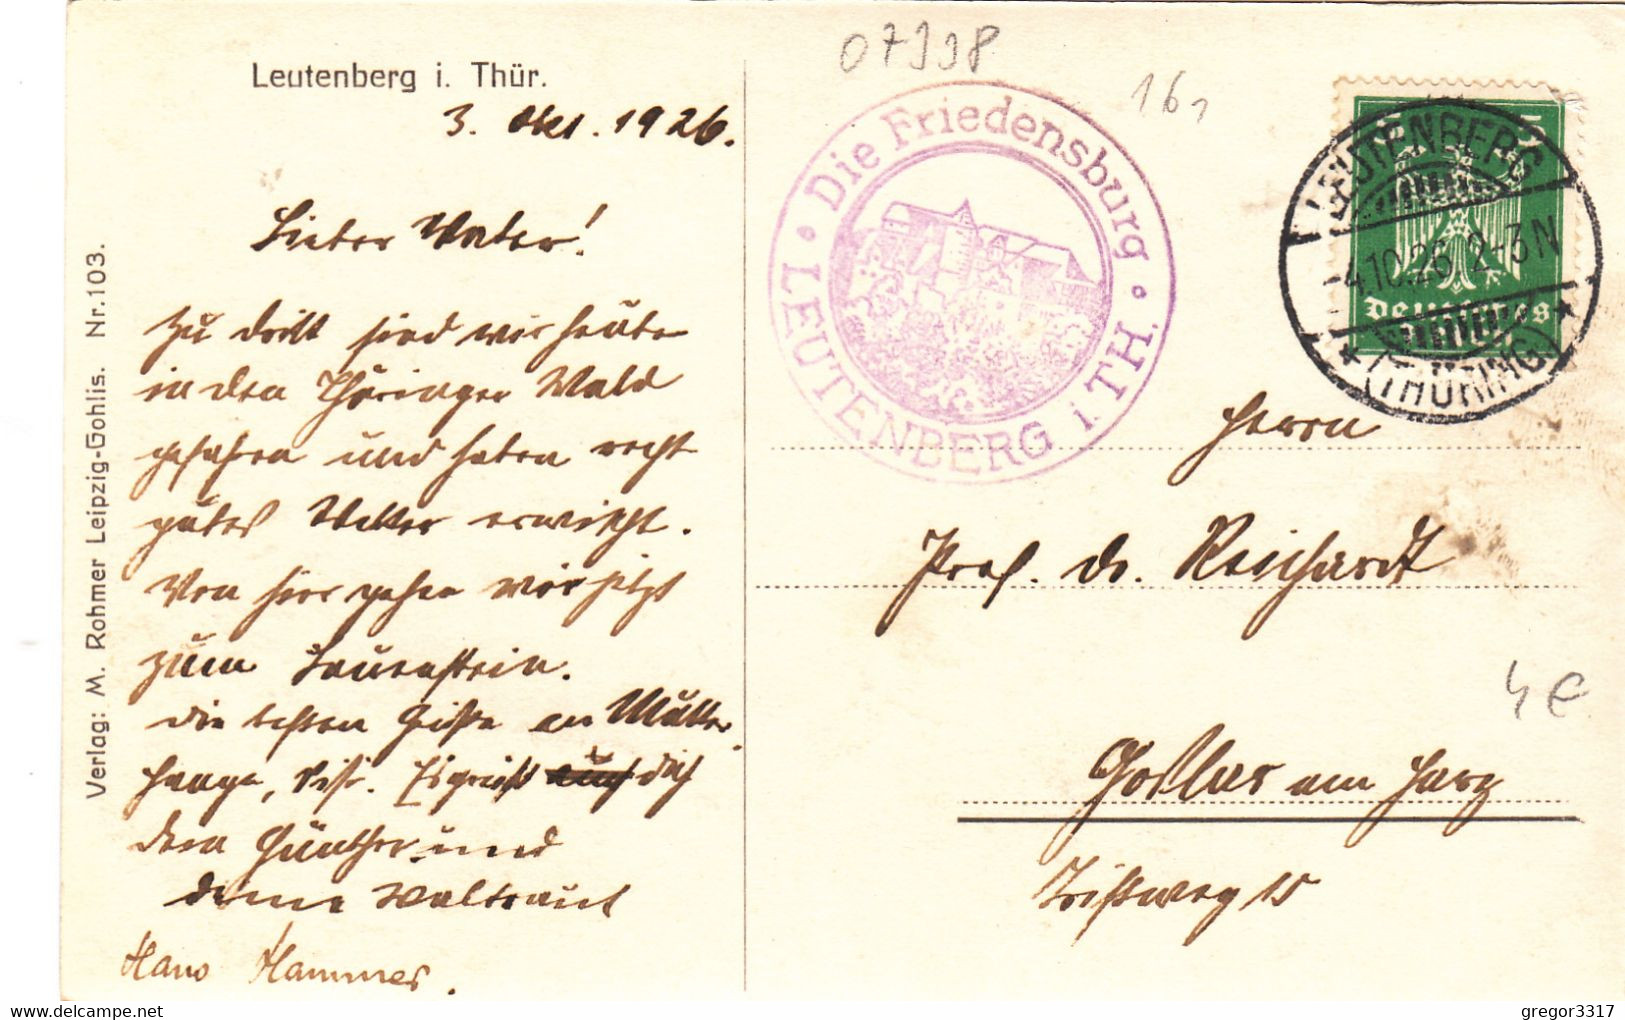 Leutenberg i. Thür.
3. Okt. 1926.
Lieber Vater!
Zu dritt sind wir heute
in den Thüringer Wald
gefahren und haben recht
gutes Wetter erwischt.
Von hier gehen wir jetzt
zum Lauenstein.
Die besten Grüße an Mutter,
Es grüßt dich
dein Günther und
deine Waltraut
Hans Hammer.
Verlag: M. Rohmer Leipzig-Gohlis. Nr. 103.
07338
161
Die Friedensburg
LEUTENBERG i. TH.
LEUTENBERG
4.10.26 2-3N
(THÜRING.)
5 5
Deutsches
Herrn
Prof. Dr. Reichardt
Goslar am Harz
Triftweg 15
4 €
www.delcampe.net
gregor3317